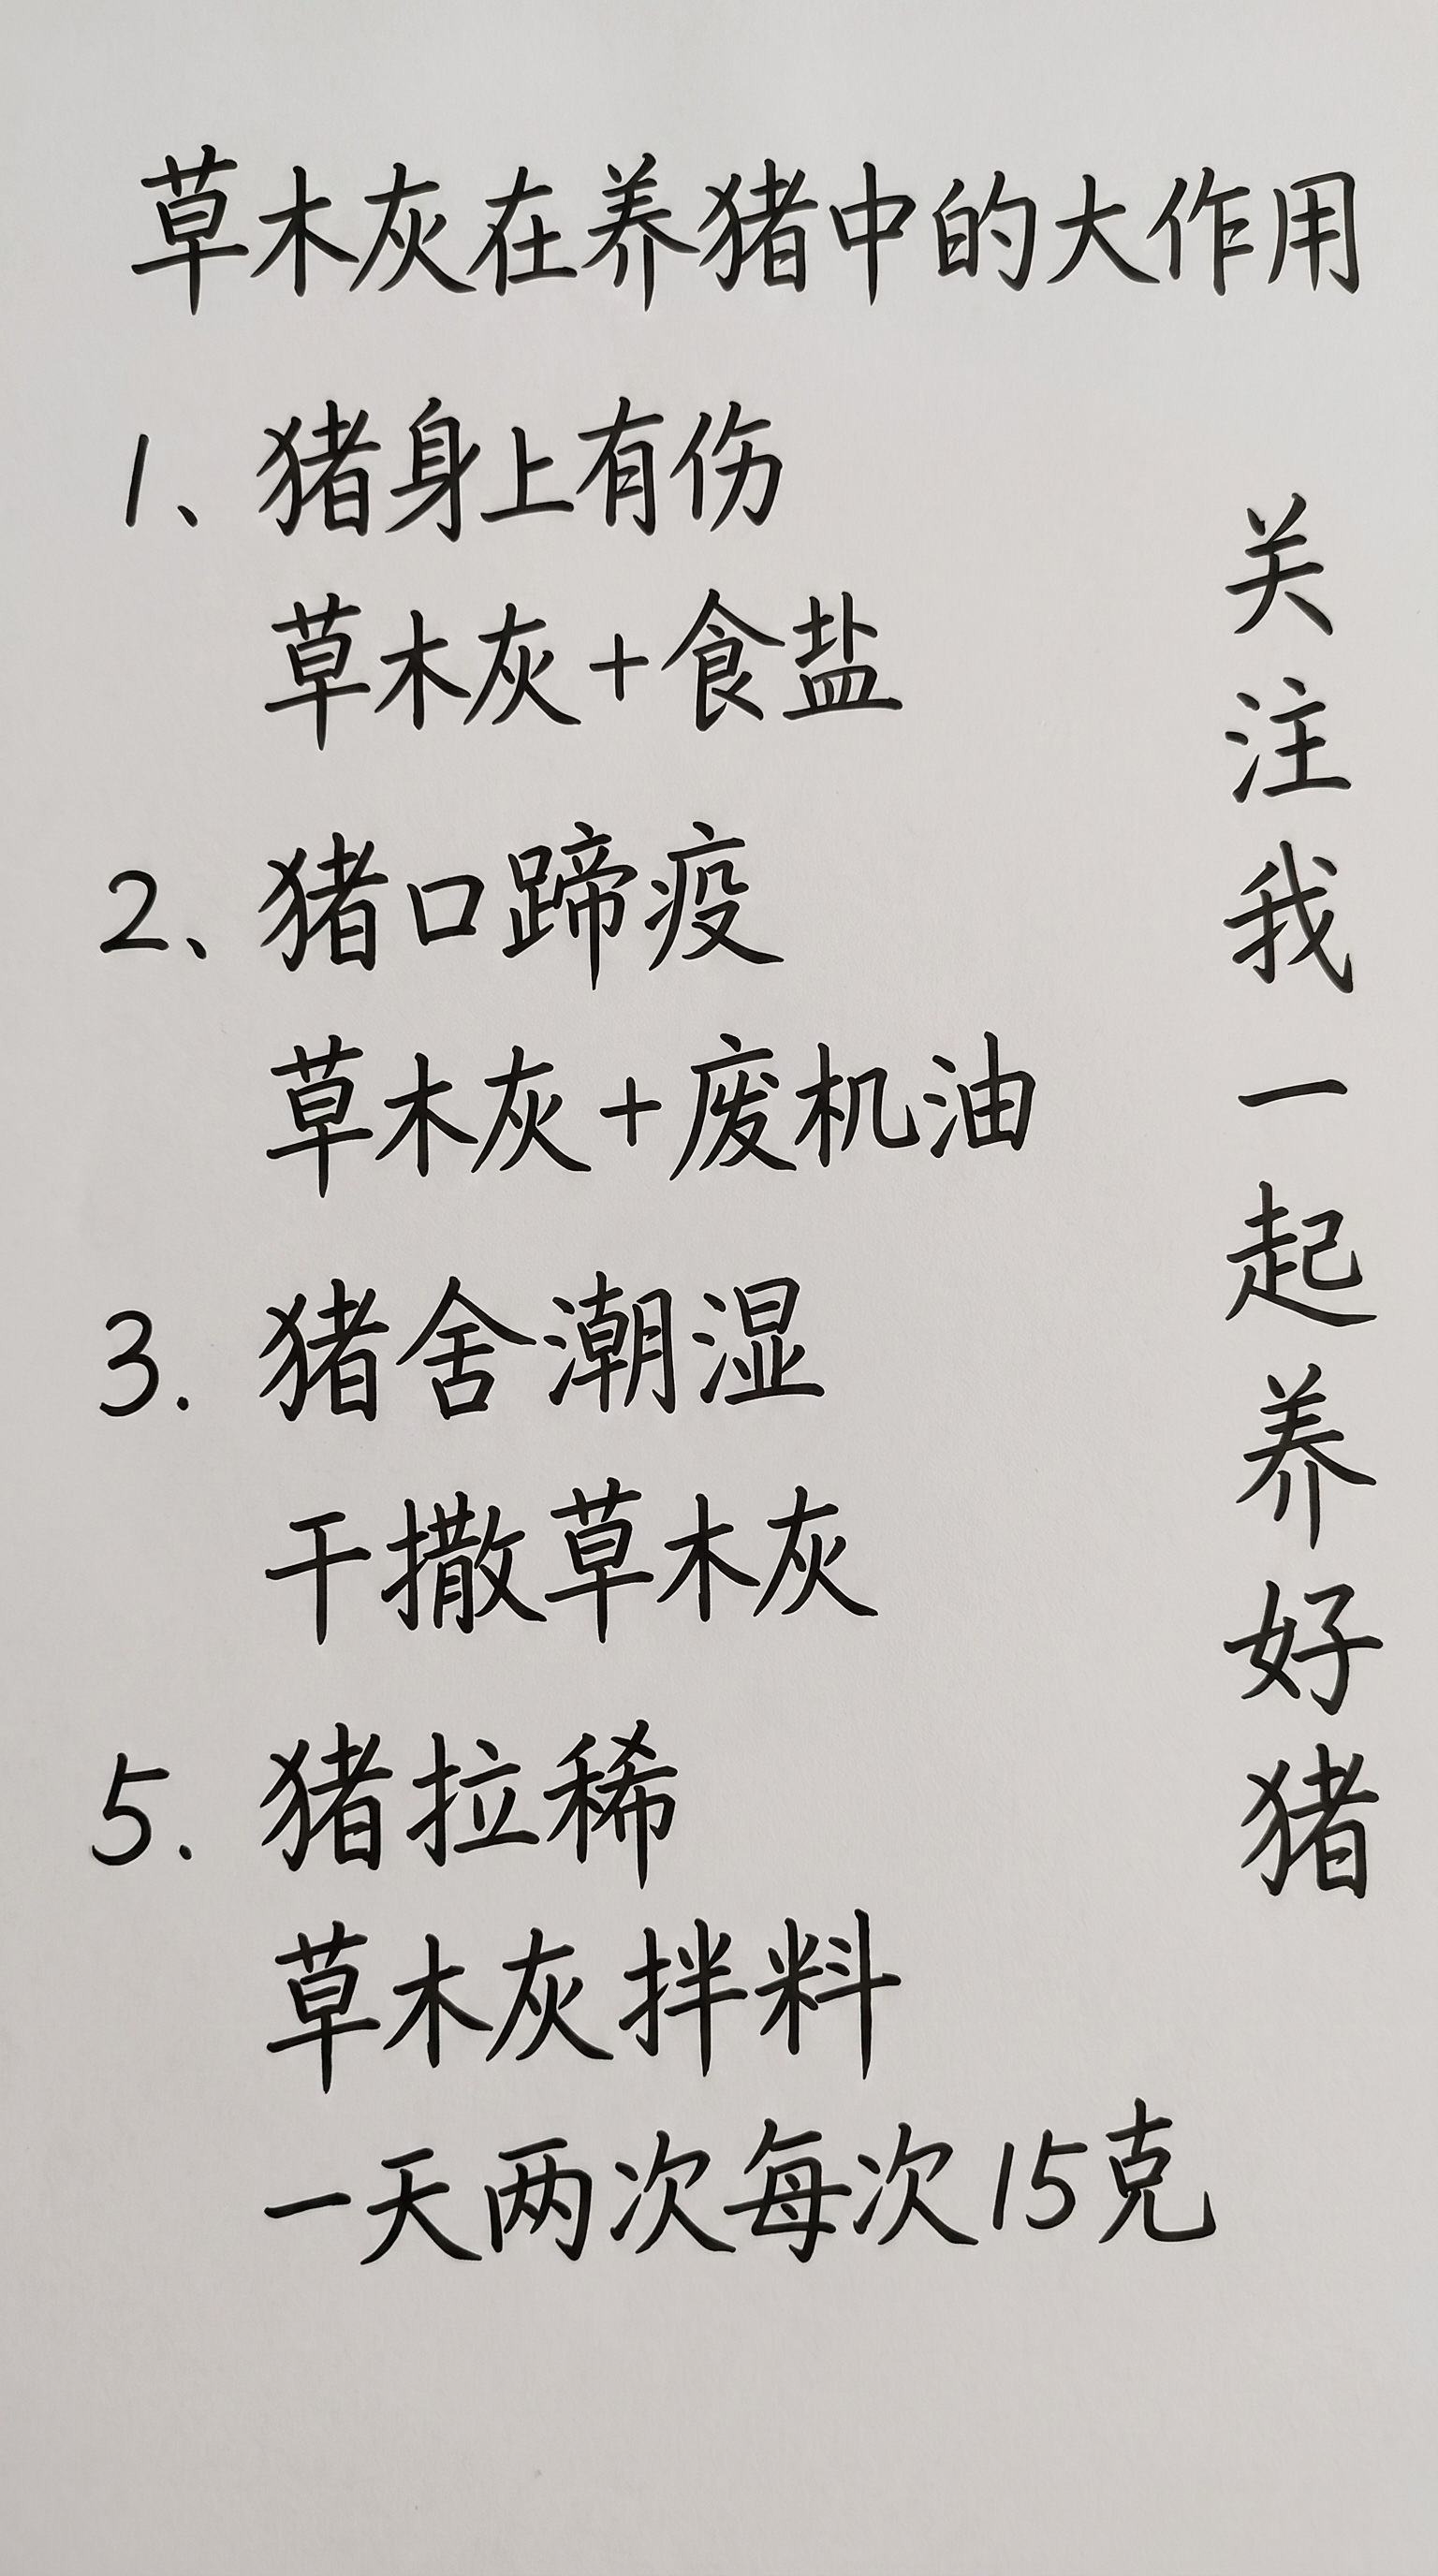 草木灰在养猪中的大作用
1、猪身上有伤
草木灰+食盐
2、猪口蹄疫
草木灰+废机油
3.猪舍潮湿
干撒草木灰
5.猪拉稀
草木灰拌料
一天两次每次15克
关注我一起养好猪